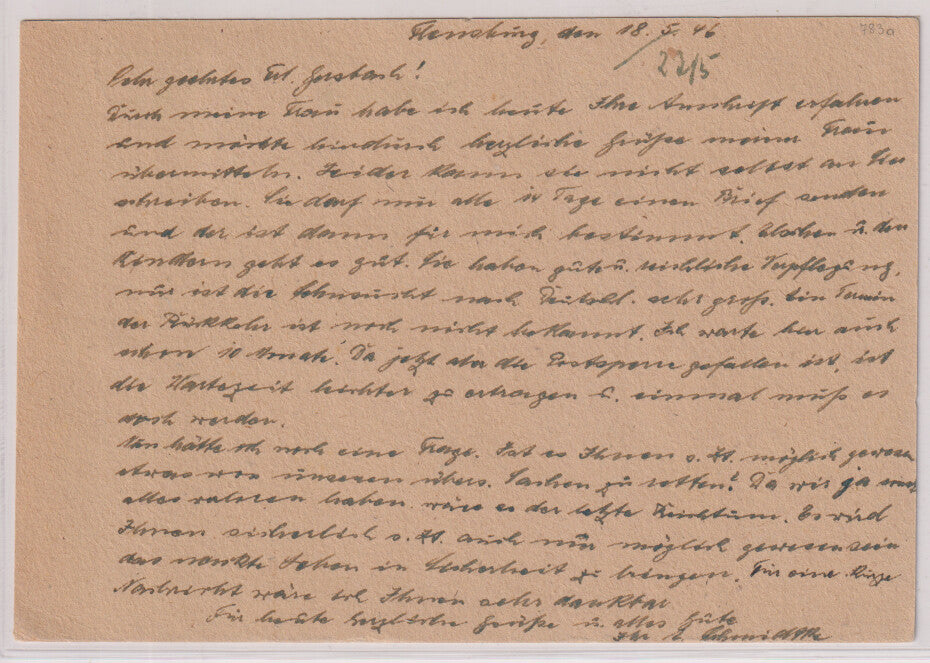 Flensburg, den 18.5.46
783a
22/5
Sehr geehrtes Frl. !
Durch meine Frau habe ich heute Ihre Anschrift erfahren
und möchte hierdurch herzliche Grüße meiner Frau
übermitteln. Leider kann sie nicht selbst an Sie
schreiben. Sie darf nur alle 14 Tage einen Brief senden
und der ist dann für mich bestimmt. u. den
Kindern geht es gut. Sie haben gute u. reichliche Verpflegung,
nur ist die Sehnsucht nach Deutschl. sehr groß. Ein Termin
der Rückkehr ist noch nicht bekannt. Ich warte hier auch
schon 10 Monate. Da jetzt aber die Postsperre gefallen ist, ist
die Wartezeit leichter zu ertragen u. einmal muß es
doch werden.
Nun hätte ich noch eine Frage. Ist es Ihnen s. Zt. möglich gewesen
etwas von unseren Sachen zu retten? Da wir ja sonst
alles verloren haben, wäre es der letzte Reichtum. Es wird
Ihnen sicherlich s. Zt. auch nur möglich gewesen sein
das nackte Leben in Sicherheit zu bringen. Für eine kurze
Nachricht wäre ich Ihnen sehr dankbar
Für heute herzliche Grüße u. alles Gute
Ihr